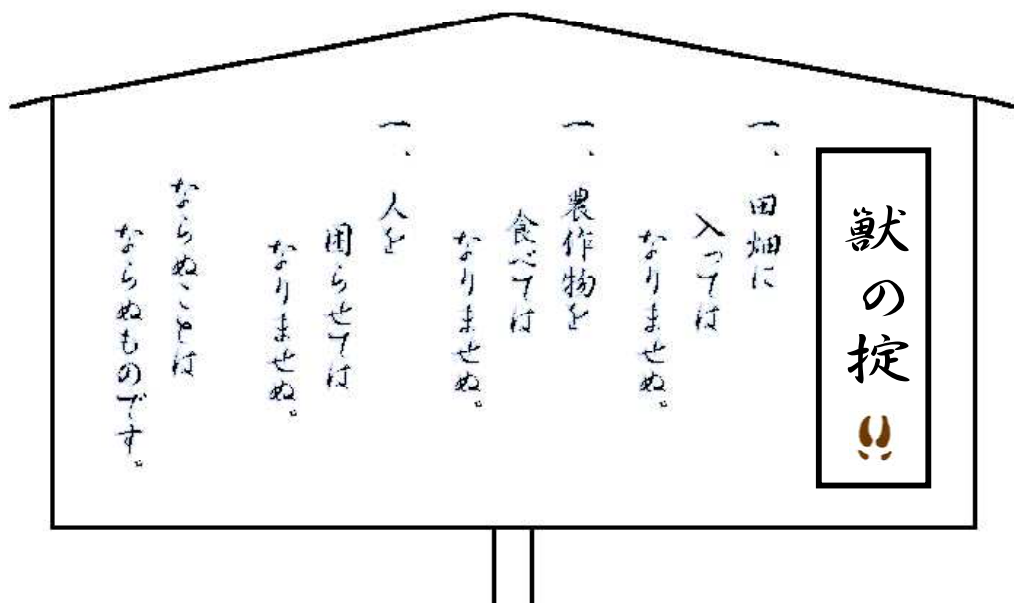 獣の掟
一、田畑に
入っては
なりませぬ。
一、農作物を
食べては
なりませぬ。
一、人を
困らせては
なりませぬ。
ならぬことは
ならぬものです。